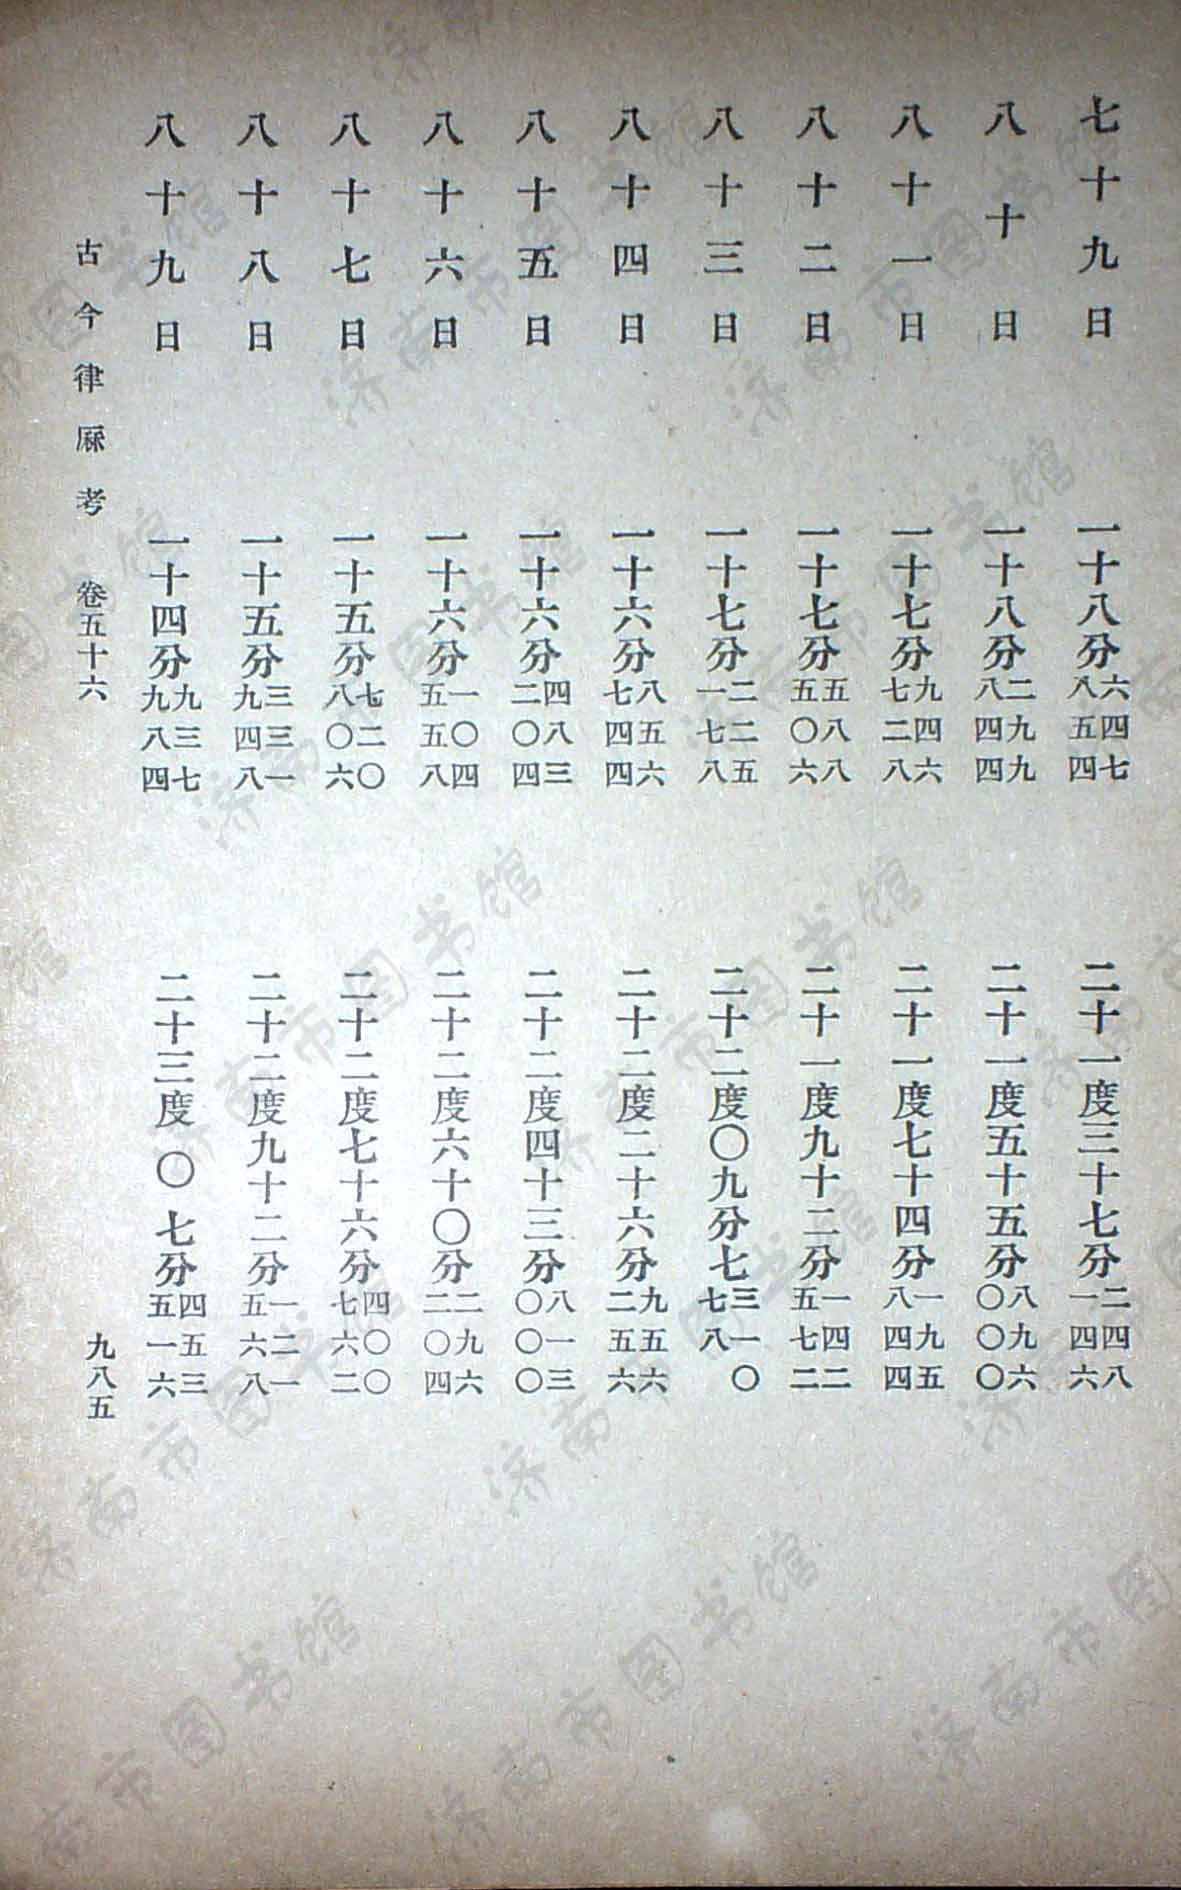 七十九日 一十八分六四七八五四 二十一度三十七分二四八一四六
八十日 一十八分二九九八四四 二十一度五十五分八九六〇〇〇
八十一日 一十七分九四六七二八 二十一度七十四分一九五八四四
八十二日 一十七分五八八五〇六 二十一度九十二分一四二五七二
八十三日 一十七分二二五一七八 二十二度〇九分七三一〇七八
八十四日 一十六分八五六七四四 二十二度二十六分九五六二五六
八十五日 一十六分四八三二〇四 二十二度四十三分八一三〇〇〇
八十六日 一十六分一〇四五五八 二十二度六十〇分二九六二〇四
八十七日 一十五分七二〇八〇六 二十二度七十六分四〇〇七六二
八十八日 一十五分三三一九四八 二十二度九十二分一二一五六八
八十九日 一十四分九三七九八四 二十三度〇七分四五三五一六
古今律厤考 卷五十六 九八五
济南市图书馆